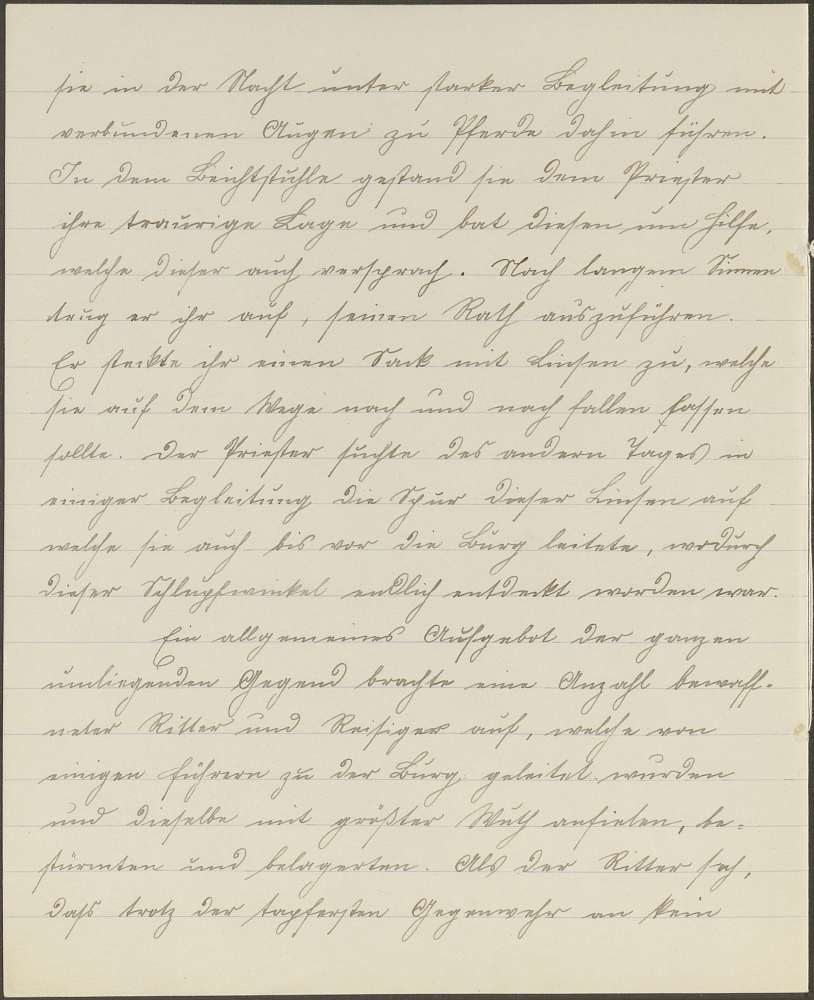 sie in der Nacht unter starker Begleitung mit
verbundenen Augen zu Pferde dahin führen.
In dem Beichtstuhle gestand sie dem Priester
ihre traurige Lage und bat diesen um Hilfe,
welche dieser auch versprach. Nach langem Sinnen
trug er ihr auf, seinen Rath auszuführen.
Er steckte ihr einen Sack mit Linsen zu, welche
sie auf dem Wege nach und nach fallen lassen
sollte. Der Priester suchte des andern Tages in
einiger Begleitung die Spur dieser Linsen auf
welche sie auch bis vor die Burg leitete, wodurch
dieser Schlupfwinkel endlich entdeckt worden war.
Ein allgemeines Aufgebot der ganzen
umliegenden Gegend brachte eine Anzahl bewaff-
neter Ritter und Reisiger auf, welche von
einigen Führern zu der Burg geleitet wurden
und dieselbe mit größter Wuth anfielen, be-
stürmten und belagerten. Als der Ritter sah,
dass trotz der tapfersten Gegenwehr an kein